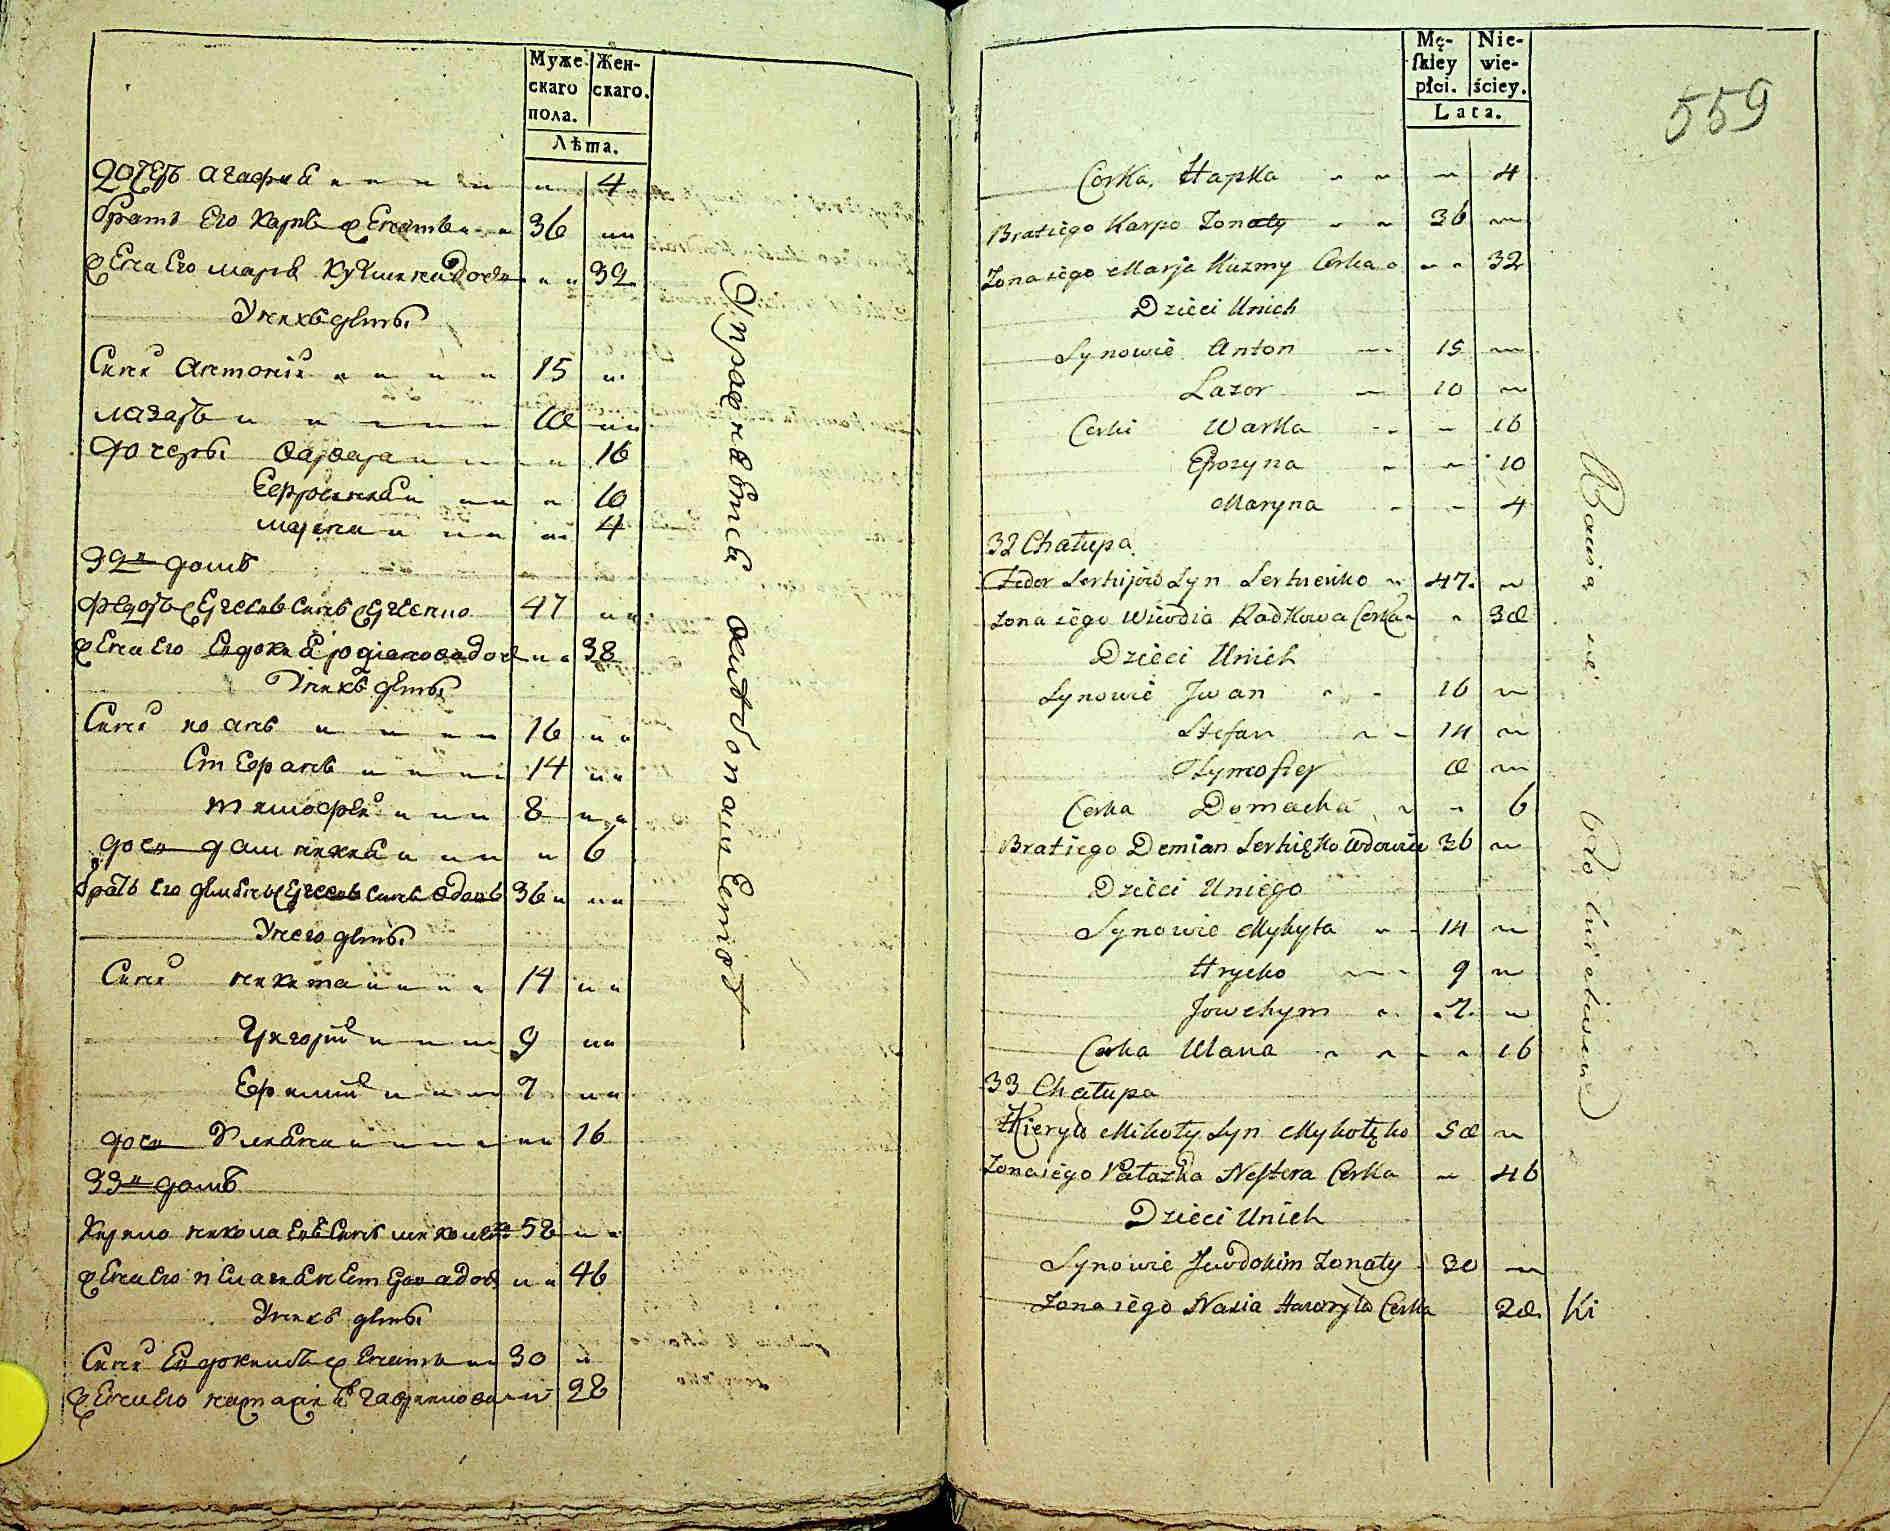 Муже-
скаго
пола.
Жен-
скаго.
Лѣта.
дочерь агафия 4
братъ его карпъ женатъ 36
жена его маря кузмина дочь 32
У нихъ дѣти
Сини антоній 15
лазарь 10
дочери варвара 16
Евфросиния 10
марина 4
32й домъ
федоръ сергеевъ синъ сергиенко 47
жена его Евдокия родионова доч 38
У нихъ дѣти
Сини иоанъ 16
Стефанъ 14
тимофей 8
дочь домникия 6
братъ его демянъ сергеевъ синъ вдовъ 36
У него дѣти
Сини никита 14
Григорий 9
Ефимий 7
дочь Улияна 16
33й домъ
Кирило николаевъ синъ миколенко 58
жена его пелагия нестерова доч 46
У нихъ дѣти
Сини Евдокимъ женатъ 30
жена его анастасия гаврилова 28
Mę-
skiey
płci.
Nie-
wie-
ściey.
Lata.
559
Corka Hapka 4
Brat iego Karpo Zonaty 36
Zona iego Marja Kuzmy Corka 32
Dzieci Unich
Synowie Anton 15
Lazor 10
Corki Warka 16
Eprozyna 10
Maryna 4
32 Chałupa
Fedor Serhijów Syn Serhieńko 47
Zona iego Wiwdia Radkowa Corka 38
Dzieci Unich
Synowie Jwan 16
Stefan 14
Tymofiey 8
Corka Domacha 6
Brat iego Demian Serhięko Wdowiec 36
Dzieci Uniego
Synowie Mykyta 14
Hrycko 9
Jowchym 7
Corka Ulana 16
33 Chałupa
Kieryło Mikoły Syn Mykołęko 58
Zona iego Pałazka Nestera Corka 46
Dzieci Unich
Synowie Jewdokim Zonaty 30
Zona iego Nasia Hawryło Corka 28
Ki